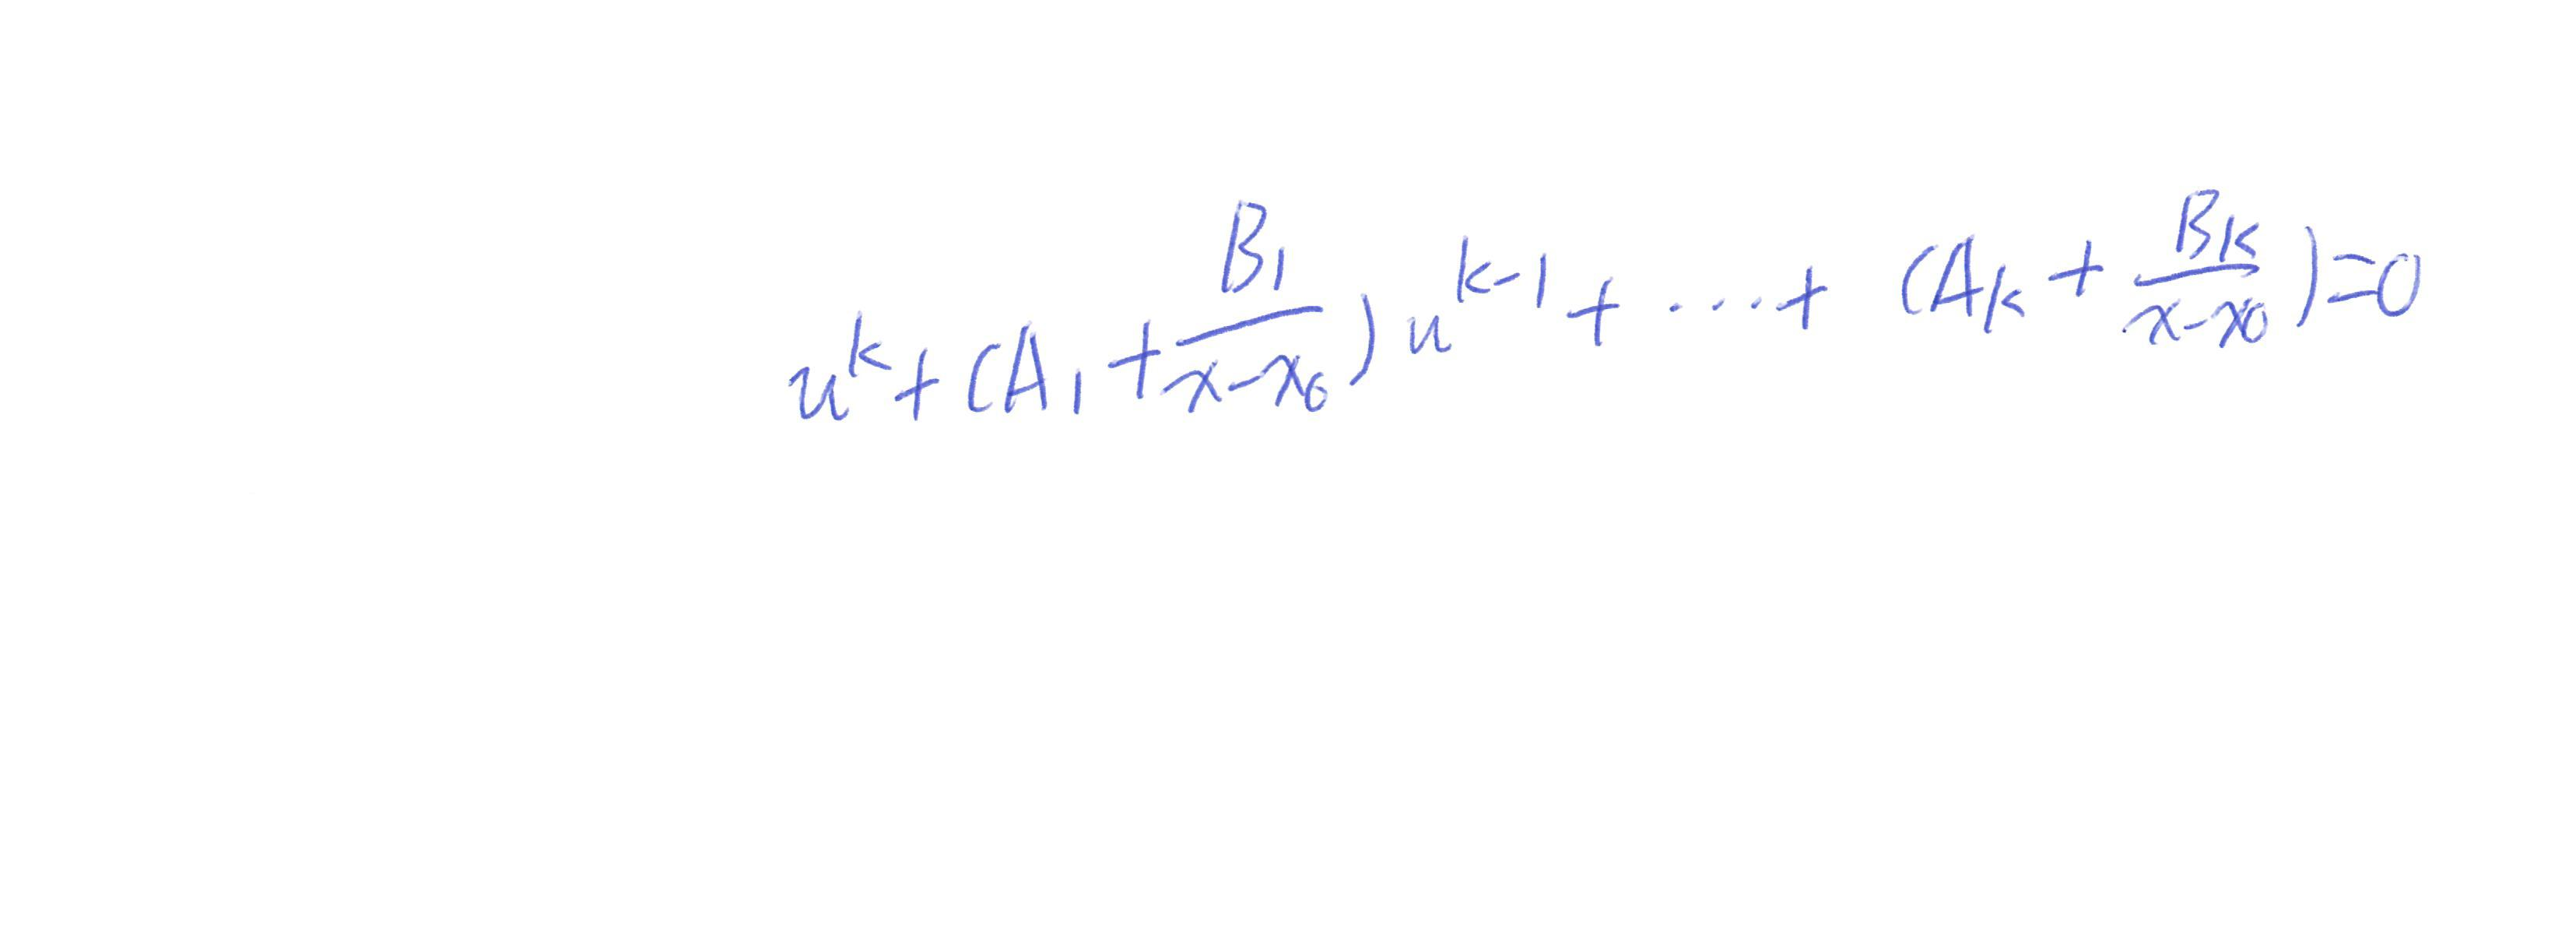 $u^k + (A_1 + \frac{B_1}{x-x_0}) u^{k-1} + \cdots + (A_k + \frac{B_k}{x-x_0}) = 0$